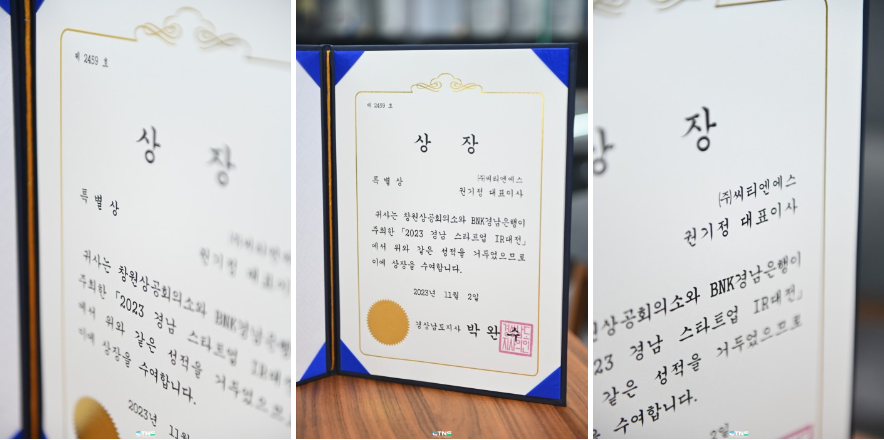 제 2459 호
상 장
특 별 상
귀사는 창원상공회의소와 BNK경남은행
주최한 「2023 경남 스타트업 IR대전
에서 위와 같은 성적을 거두었으므로
이에 상장을 수여합니다.
2023년 11월
제 2459 호
상 장
특 별 상
㈜씨티엔에스
권기정 대표이사
귀사는 창원상공회의소와 BNK경남은행이
주최한 「2023 경남 스타트업 IR대전」
에서 위와 같은 성적을 거두었으므로
이에 상장을 수여합니다.
2023년 11월 2일
경상남도지사 박 완 수
CTNS
장
㈜씨티엔에스
권기정 대표이사
상공회의소와 BNK경남은행이
23 경남 스타트업 IR대전」
같은 성적을 거두었으므로
수여합니다.
2일